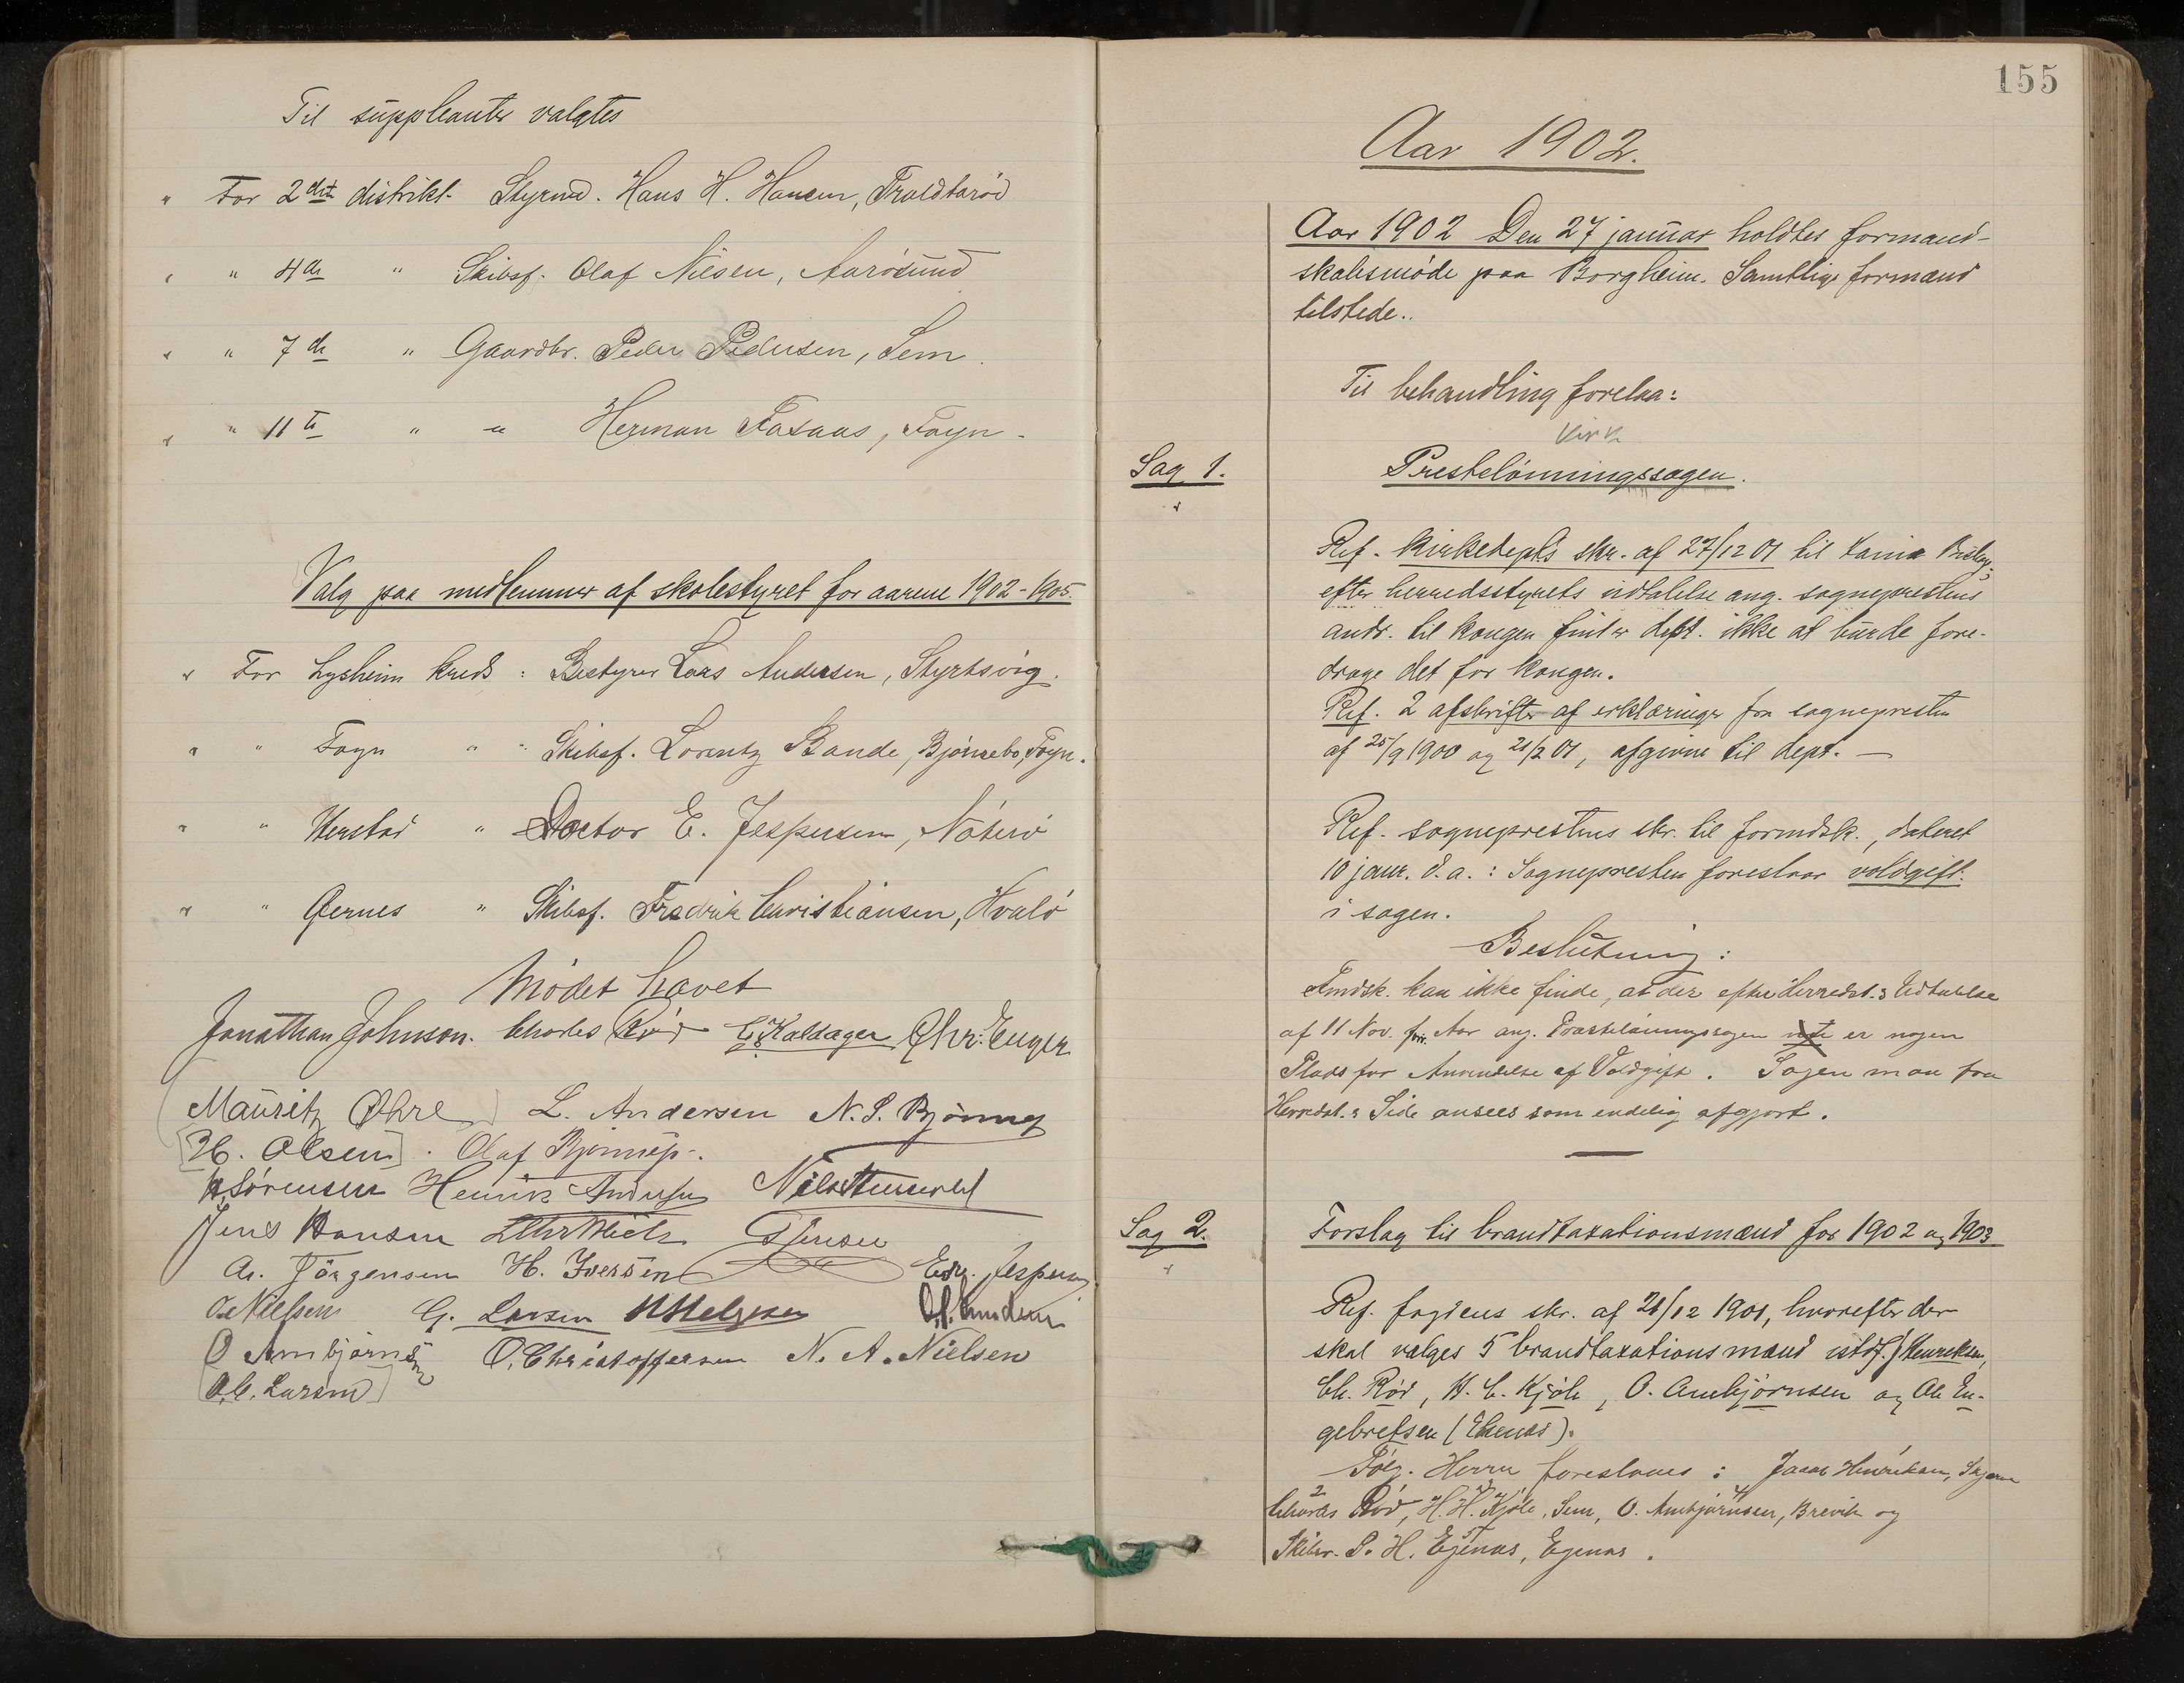 Til suppleanter valgtes
" For 2det distrikt Styrmd. Hans H. Hansen, Troldtarød
" " 4de " Skibsf. Olaf Nilsen, Aarøsund
" " 7de " Gaardbr. Peder Pedersen, Sem.
" " 11te " " Herman Faxaas, Føyn.
Valg paa medlemmer af skolestyret for aarene 1902-1905.
" For Lysheim kreds : Bestyrer Lars Andersen, Styrtsvig.
" " Føyn " " Skibsf. Lorentz Bande, Bjørnebo, Føyn.
" " Herstad " Doctor E. Jespersen, Nøterø
" " Gernes " Skibsf. Fredrik Christiansen, Hvalø
Mødet hævet
Jonathan Johnson. Charles Rød C. Kaldager Chr. Enger
Mauritz Øhre L. Andersen N. S. Bjønnes
[H. Olsen] . Olaf Bjønnes.
H. Sørensen Henrik Andersen
Jens Hansen Jensen
A. Jörgensen H. Iversen Edv. Jespersen
O. Nielsen G. Larsen H Helgesen
O Ambjørnsen O. Christoffersen N. A. Nielsen
[O. C. Larsen]
155
Aar 1902.
Aar 1902 Den 27 januar holdtes formand-
skabsmøde paa Borgheim. Samtlige formænd
tilstede..
Til behandling forelaa:
Kirk
Sag 1. Prestelønningssagen.
Ref. Kirkedepts skr. af 27/12 01 til
efter herredsstyrets udtalelse ang. sogneprestens
andr. til kongen finder dept. ikke at burde fore-
drage det for kongen.
Ref. 2 afskrifter af erklæringer fra sognepresten
af 25/9 1900 og 21/2 01, afgivne til dept. —
Ref. sogneprestens skr. til formdsk., dateret
10 janr. d.a. : Sognepresten foreslaar voldgift
i sagen.
Beslutning :
Fmdsk. kan ikke finde, at der efter Herredst.s Udtalelse
af 11 Nov. f. Aar ang. Præstelønningssagen er nogen
Plads for Anvendelse af Voldgift. Sagen maa fra
Herredst.s Side ansees som endelig afgjort.
Sag 2. Forslag til brandtaxationsmænd for 1902 og 1903
Ref. fogdens skr. af 21/12 1901, hvorefter der
skal vælges 5 brandtaxationsmænd istdf. J Henriksen,
Ch. Rød, H. C. Kjøle, O. Ambjørnsen og Ole En-
gebretsen (Ekenes).
Følg. Herrer foreslaaes : Jacob Henriksen,
2
Charles Rød, H. H. Kjøle, Sem, O. Ambjørnsen, Brevik og
Skibsr. P. H. Egenæs, Egenæs.